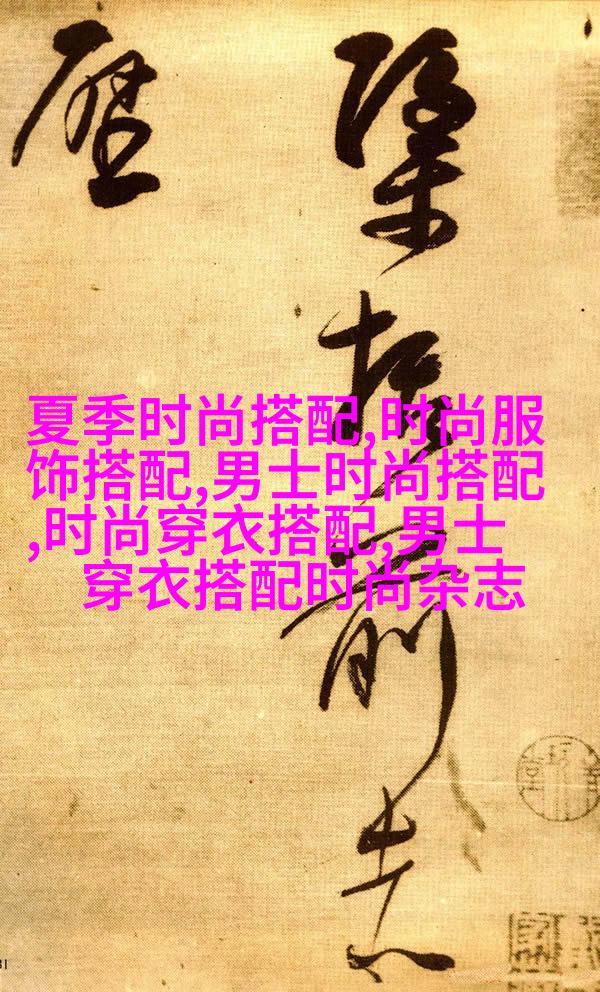 夏季时尚搭配,时尚服
饰搭配,男士时尚搭配
,时尚穿衣搭配,男士
穿衣搭配时尚杂志
括前志